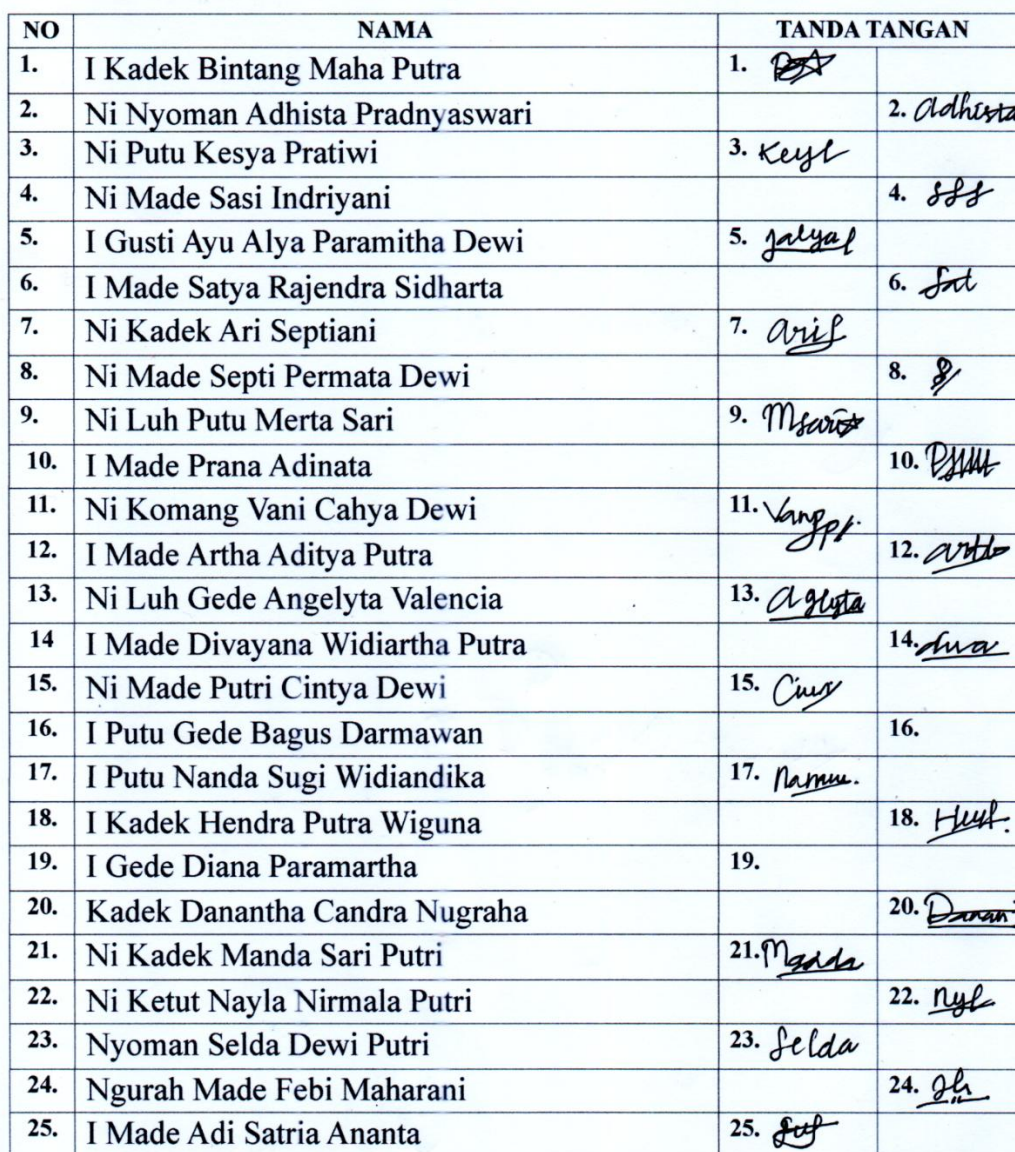 NO NAMA TANDA TANGAN
1. I Kadek Bintang Maha Putra 1.
2. Ni Nyoman Adhista Pradnyaswari 2. Adhista
3. Ni Putu Kesya Pratiwi 3.
4. Ni Made Sasi Indriyani 4.
5. I Gusti Ayu Alya Paramitha Dewi 5.
6. I Made Satya Rajendra Sidharta 6. Sat
7. Ni Kadek Ari Septiani 7.
8. Ni Made Septi Permata Dewi 8.
9. Ni Luh Putu Merta Sari 9. Msari
10. I Made Prana Adinata 10.
11. Ni Komang Vani Cahya Dewi 11.
12. I Made Artha Aditya Putra 12.
13. Ni Luh Gede Angelyta Valencia 13.
14 I Made Divayana Widiartha Putra 14.
15. Ni Made Putri Cintya Dewi 15.
16. I Putu Gede Bagus Darmawan 16.
17. I Putu Nanda Sugi Widiandika 17.
18. I Kadek Hendra Putra Wiguna 18.
19. I Gede Diana Paramartha 19.
20. Kadek Danantha Candra Nugraha 20.
21. Ni Kadek Manda Sari Putri 21.
22. Ni Ketut Nayla Nirmala Putri 22.
23. Nyoman Selda Dewi Putri 23. Selda
24. Ngurah Made Febi Maharani 24.
25. I Made Adi Satria Ananta 25.